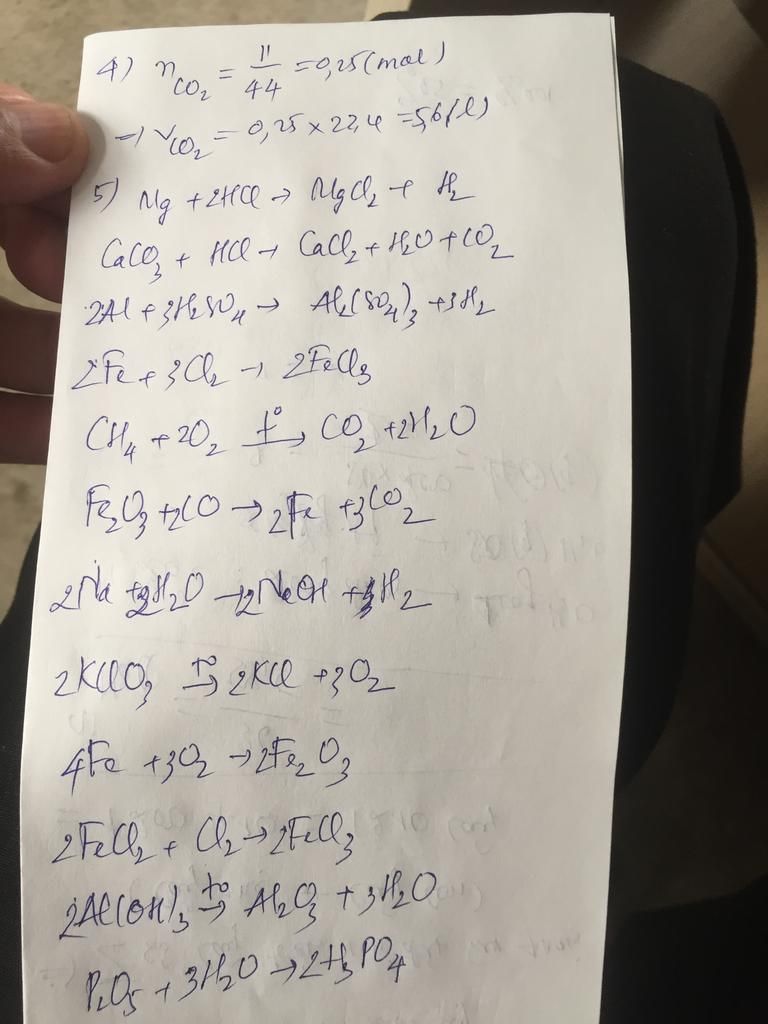 4) nCO₂ = 11/44 = 0,25 (mol)
=) VCO₂ = 0,25 x 22,4 = 5,6 (l)
5) Mg + 2HCl → MgCl₂ + H₂
CaCO₃ + HCl → CaCl₂ + H₂O + CO₂
2Al + 3H₂SO₄ → Al₂(SO₄)₃ + 3H₂
2Fe + 3Cl₂ → 2FeCl₃
CH₄ + 2O₂ t° → CO₂ + 2H₂O
Fe₂O₃ + 2CO → 2Fe + 3CO₂
2Na + 2H₂O → 2NaOH + H₂
2KClO₃ t° → 2KCl + 3O₂
4Fe + 3O₂ → 2Fe₂O₃
2FeCl₂ + Cl₂ → 2FeCl₃
2Al(OH)₃ t° → Al₂O₃ + 3H₂O
P₂O₅ + 3H₂O → 2H₃PO₄